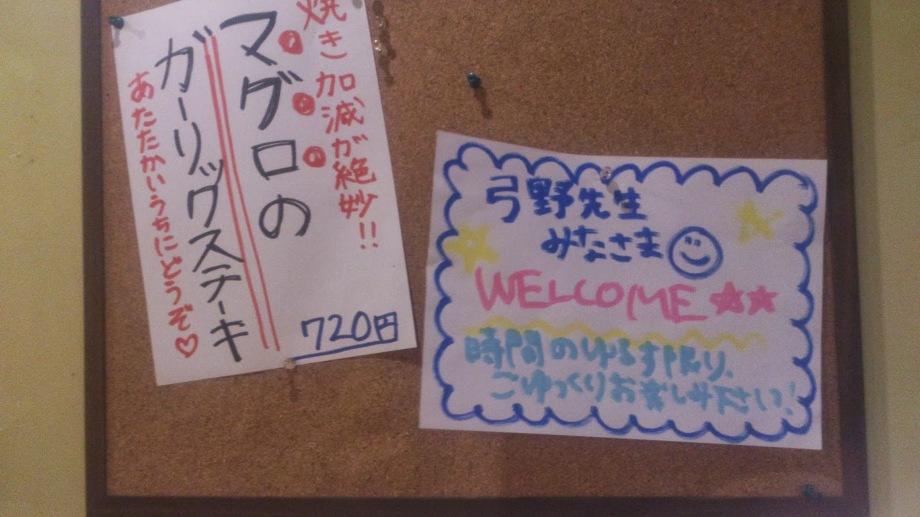 焼き加減が絶妙!!
マグロの
ガーリックステーキ
あたたかいうちにどうぞ♡
720円
弓野先生
みなさま
WELCOME☆☆
時間のゆるす限り、
ごゆっくりお楽しみ下さい!